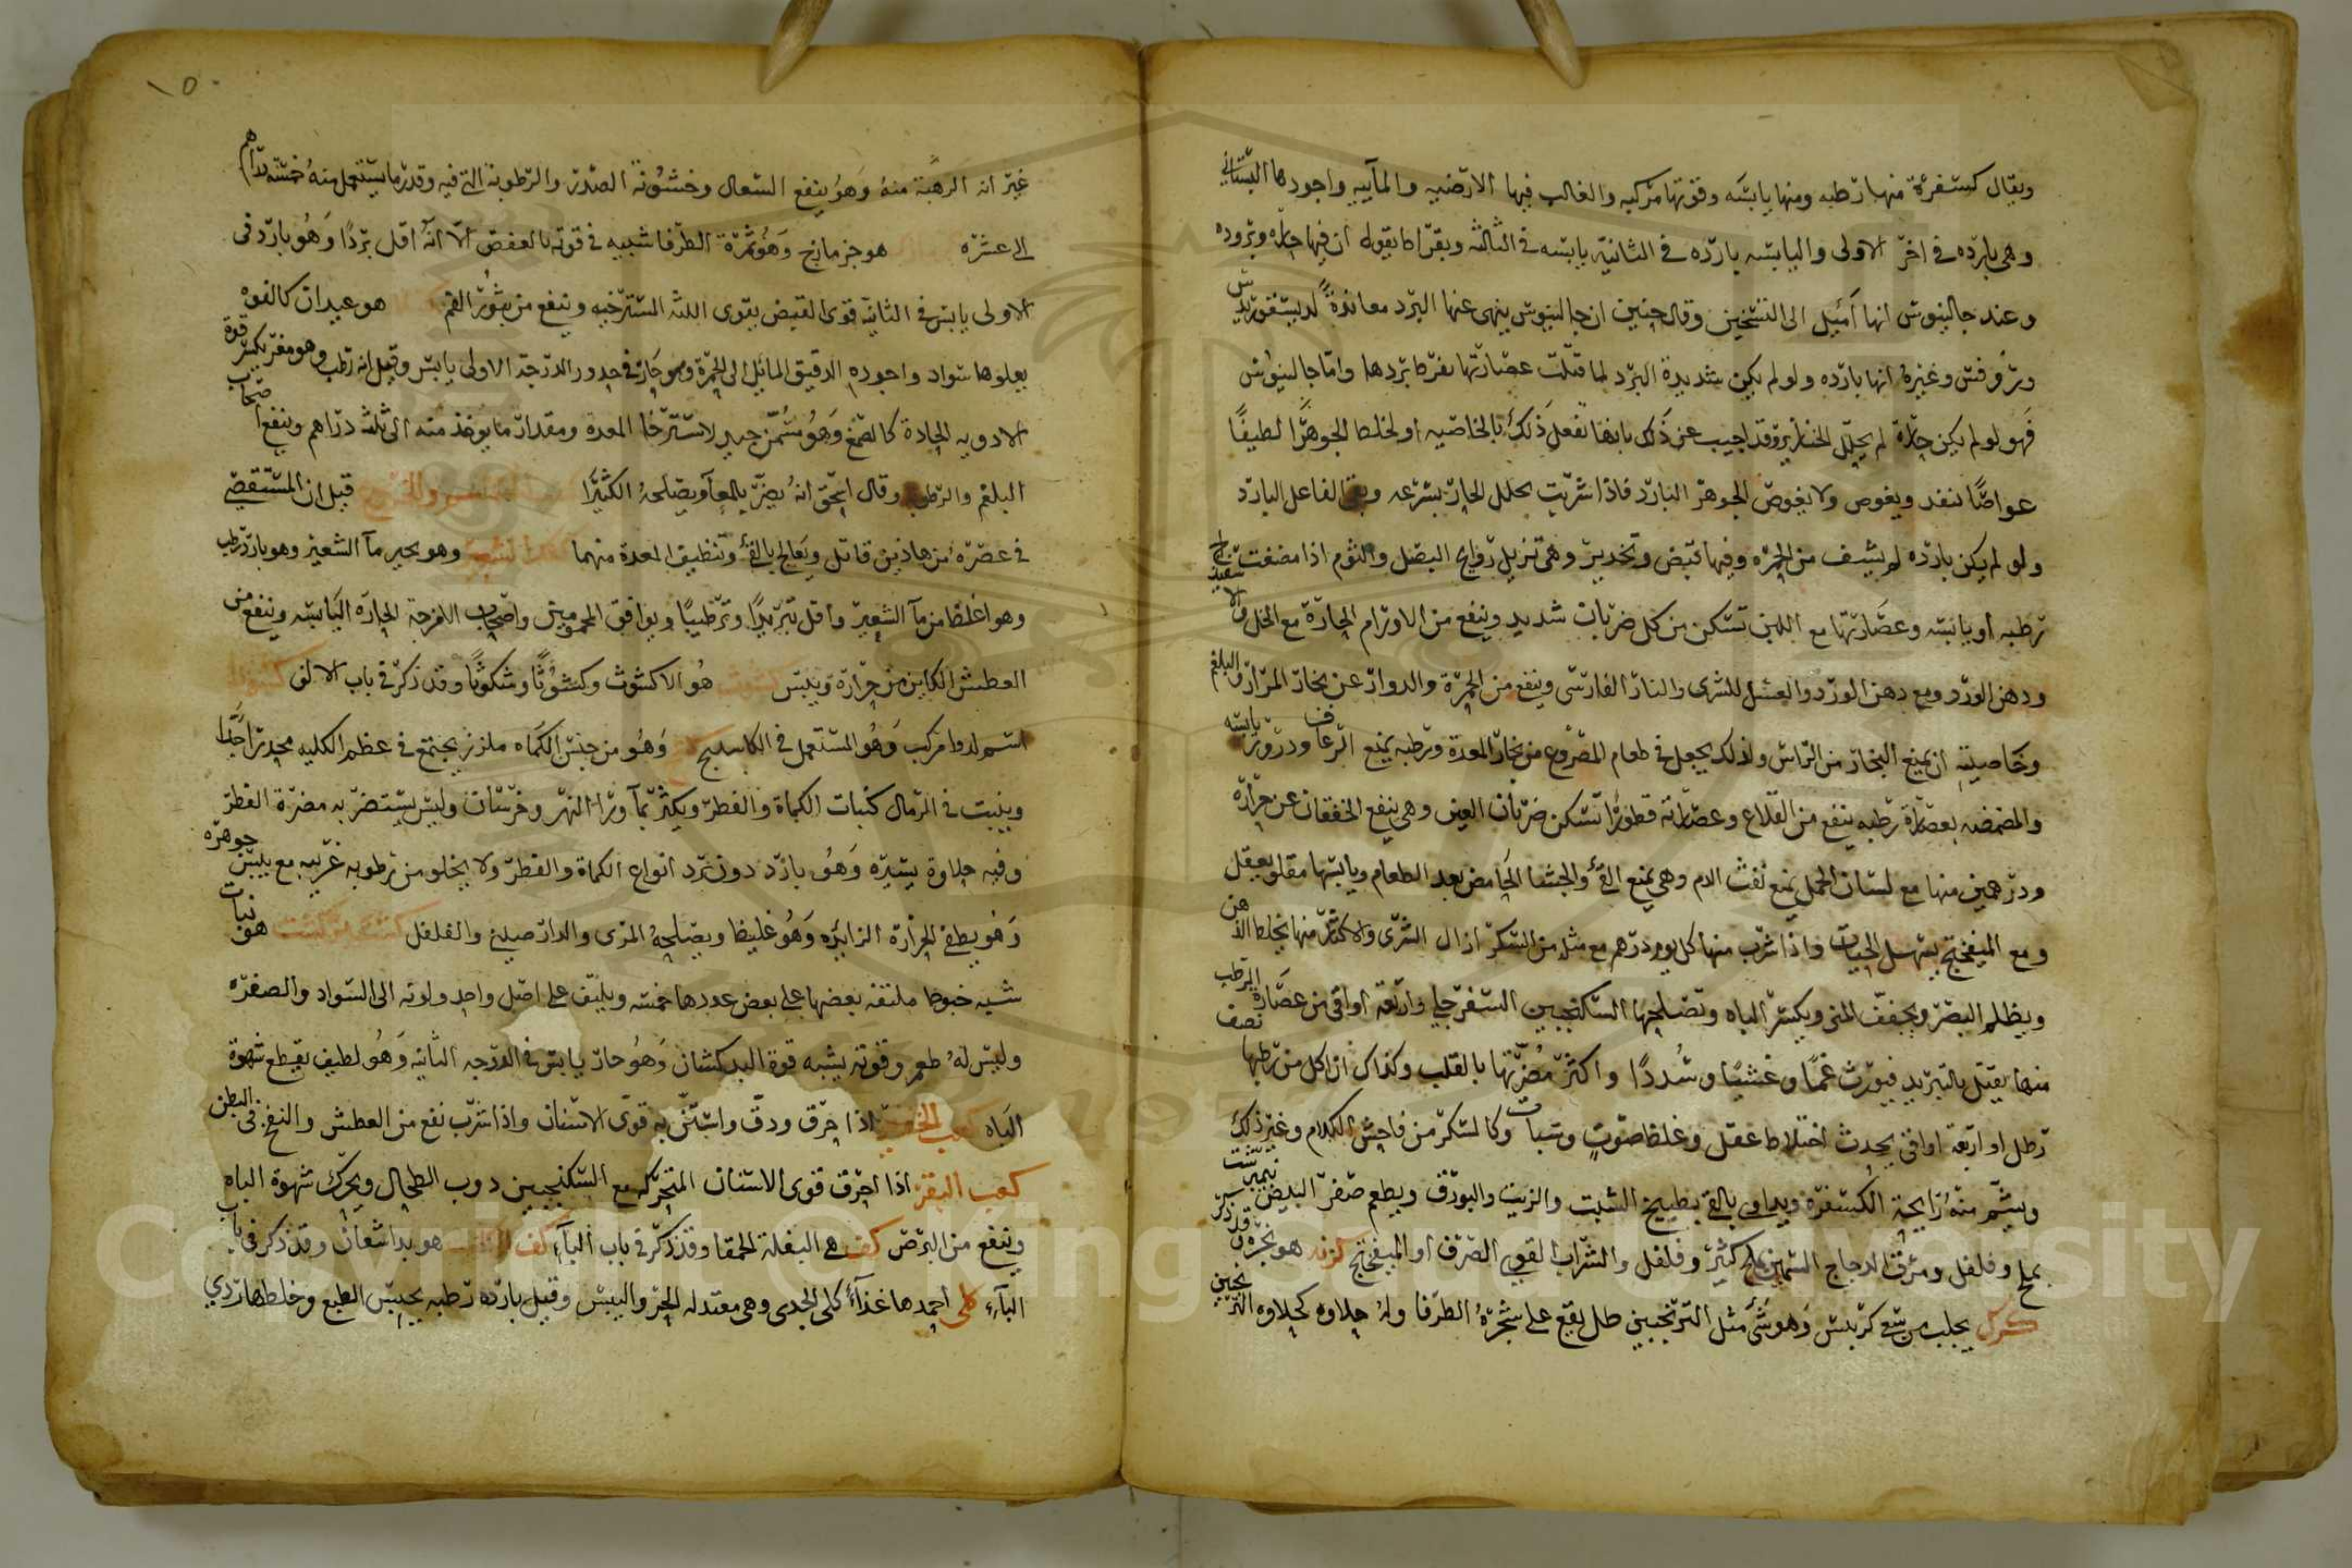 ويقال كسفرة منها رطبه ومنها يابسه وقوتها مركبه والغالب فيها الارضيه والمآييه واجودها البستاني
وهي بارده في اخر الاولى واليابسه بارده في الثانيه يابسه في الثالثه وبقراط يقول ان فيها حراره وبروده
وعند جالينوس انها أميل الى التسخين وقال حنين ان جالينوس ينهى عنها البرد معاندة لديسقوريدس
وروفس وغيره انها بارده ولو لم يكن شديدة البرد لما قتلت عصارتها بفرط بردها وامّا جالينوس
فهو لو لم يكن حارة لم يحلل الخنازير وقد اجيب عن ذلك بانها تفعل ذلك بالخاصيه او لخلط الجوهر لطيفا
عواصًا ينفد ويغوص ولا يغوص الجوهر البارد فاذا شربت تحلل الحار بسرعه وبقى الفاعل البارد
ولو لم يكن بارده لم يشف من الحمره وفيها قبض وتخدير وهي تزيل روايح البصل والثوم اذا مضغت
رطبه او يابسه وعصارتها مع اللبن تسكن من كل ضربان شديد وينفع من الاورام الحارة مع الخل
ودهن الورد ومع دهن الورد والعسل للشرى والنار الفارسي وينفع من الحمرة والدوار عن بخار المرار والبلغم
وخاصيته ان يمنع البخار من الراس ولذلك يجعل في طعام المصروع من بخار المعدة ورطبه يمنع الرعاف وذرور يابسه
والمضمضه بعصارة رطبه ينفع من القلاع وعصارته قطورًا تسكن ضربان العين وهي ينفع الخفقان عن حرارة
ودرهمين منها مع لسان الحمل يمنع نفث الدم وهي يمنع القئ والجشا الحامض بعد الطعام ويابسها مقلو يعقل
ومع الميفختج يسهل الحيات واذا شرب منها كل يوم درهم مع مثله من السكر ازال الشرى والاكثار منها يخلط الذهن
ويظلم البصر ويجفف المنى ويكسر الباه وتصلحها السكنجبين السفرجلي واربعة اواقي من عصارة الرطب
منها يقتل بالتبريد فيورث غمًا وغشيًا وسُددًا واكثر مضرتها بالقلب وكذلك ان اكل من رطبها نصف
رطل او اربعة اواقي يحدث اختلاط عقل وغلظ صوت وسبات وكالسكر من فاحش الكلام وغير ذلك
ويشم منه رايحة الكسفرة ويداوي بالقئ بطبيخ الشبت والزيت والبورق ويطعم صفر البيض
بملح وفلفل ومرق الدجاج السمين بملح كثير وفلفل والشراب القوي الصرف او الميفختج
كزكر يجلب من وهو شئ مثل الترنجبين طل يقع على شجرة الطرفا وله حلاوة كحلاوة الترنجبين
غير ان الرهبة منه وهو ينفع السعال وخشونة الصدر والرطوبة التي فيه وقدر ما يستعمل منه خمسه دراهم
الى عشره هو جزمازج وهو ثمرة الطرفا شبيه في قوته بالعفص الا انه اقل بردًا وهو بارد في
الاولى يابس في الثانيه قوي القبض يقوى اللثه المسترخيه وينفع من بثور الفم هو عيدان كالفوه
يعلوها سواد واجوده الدقيق المايل الى الحمرة وهو حار في حدود الدرجة الاولى يابس وقيل انه رطب وهو مغر يكسر قوة
الادويه الحادة كالصمغ وهو مسمن جيد لاسترخا المعدة ومقدار ما يوخذ منه الى ثلثة دراهم وينفع اصحاب
البلغم والرطوبه وقال اسحق انه يضر بالمعآ ويصلحه الكثيرا قيل ان المستقصى
في عصره من هاذين قاتل ويعالج بالقئ وتنظيف المعدة منهما كشك الشعير وهو بحير مآ الشعير وهو بارد رطب
وهو اغلظ من مآ الشعير واقل تبريدًا وترطيبًا ويوافق المحمومين واصحاب الامزجة الحاره اليابسه وينفع من
العطش الكاين من حرارة ويبس كشوث هُو الاكشوث وكشوثًا وشكوثًا وقد ذكر في باب الالف
اسم لدوا مركب وهو المستعمل في الكاسليج وهو من جنس الكماه ملزز يجتمع في عظم الكليه محدد اجدًا
وينبت في الرمال كنبات الكماة والفطر ويكثر بمآ ورا النهر وخرسان وليس يستضر به مضرة الفطر
وفيه حلاوة يسيره وهو بارد دون برد انواع الكماة والفطر ولا يخلو من رطوبه غريبه مع يبس جوهره
وهو يطفئ الحرارة الزايده وهو غليظ ويصلحه المري والدارصيني والفلفل كشت بركشت هو نبات
شبه خيوط ملتفه بعضها على بعض عددها خمسه ويلتف على اصل واحد ولونه الى السواد والصفره
وليس له طعم وقوته يشبه قوة البدكشان وهو حار يابس في الدرجه الثانيه وهو لطيف يقطع شهوة
الباه كعب الخنزير اذا حرق ودق واستن به قوى الاسنان واذا شرب نفع من العطش والنفخ في البطن
كعب البقر اذا احرق قوى الاسنان المتحركه مع السكنجبين ذوب الطحال ويحرك شهوة الباه
وينفع من البرص كف هي البقلة الحمقا وقد ذكر في باب البآء كف هو بداشغان وقد ذكر في باب
البآء كلى احمدها غذآءً كلى الجدى وهي معتدله الحر واليبس وقيل بارده رطبه يحبس الطبع وخلطها ردي